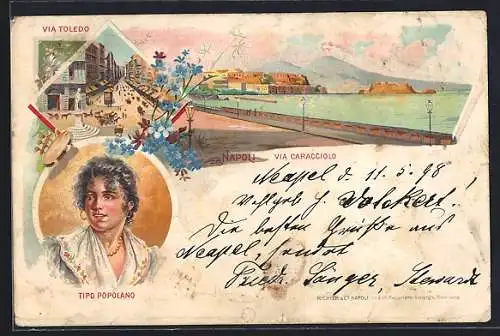 VIA TOLEDO
NAPOLI VIA CARACCIOLO
Neapel d 11. 5. 98
Wohlgeb H. Volckert!
Die besten Grüße aus
Neapel, sendet
Friedr. Sänger, Steward
TIPO POPOLANO
RICHTER & Cº NAPOLI